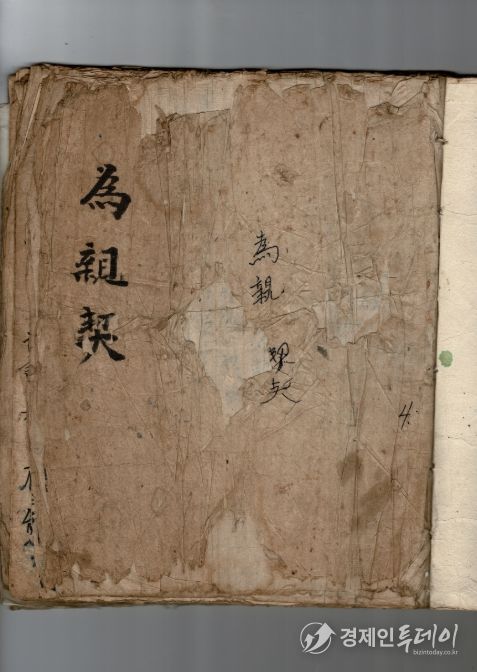 為親契
為親契
4.
경제인투데이
bizintoday.co.kr